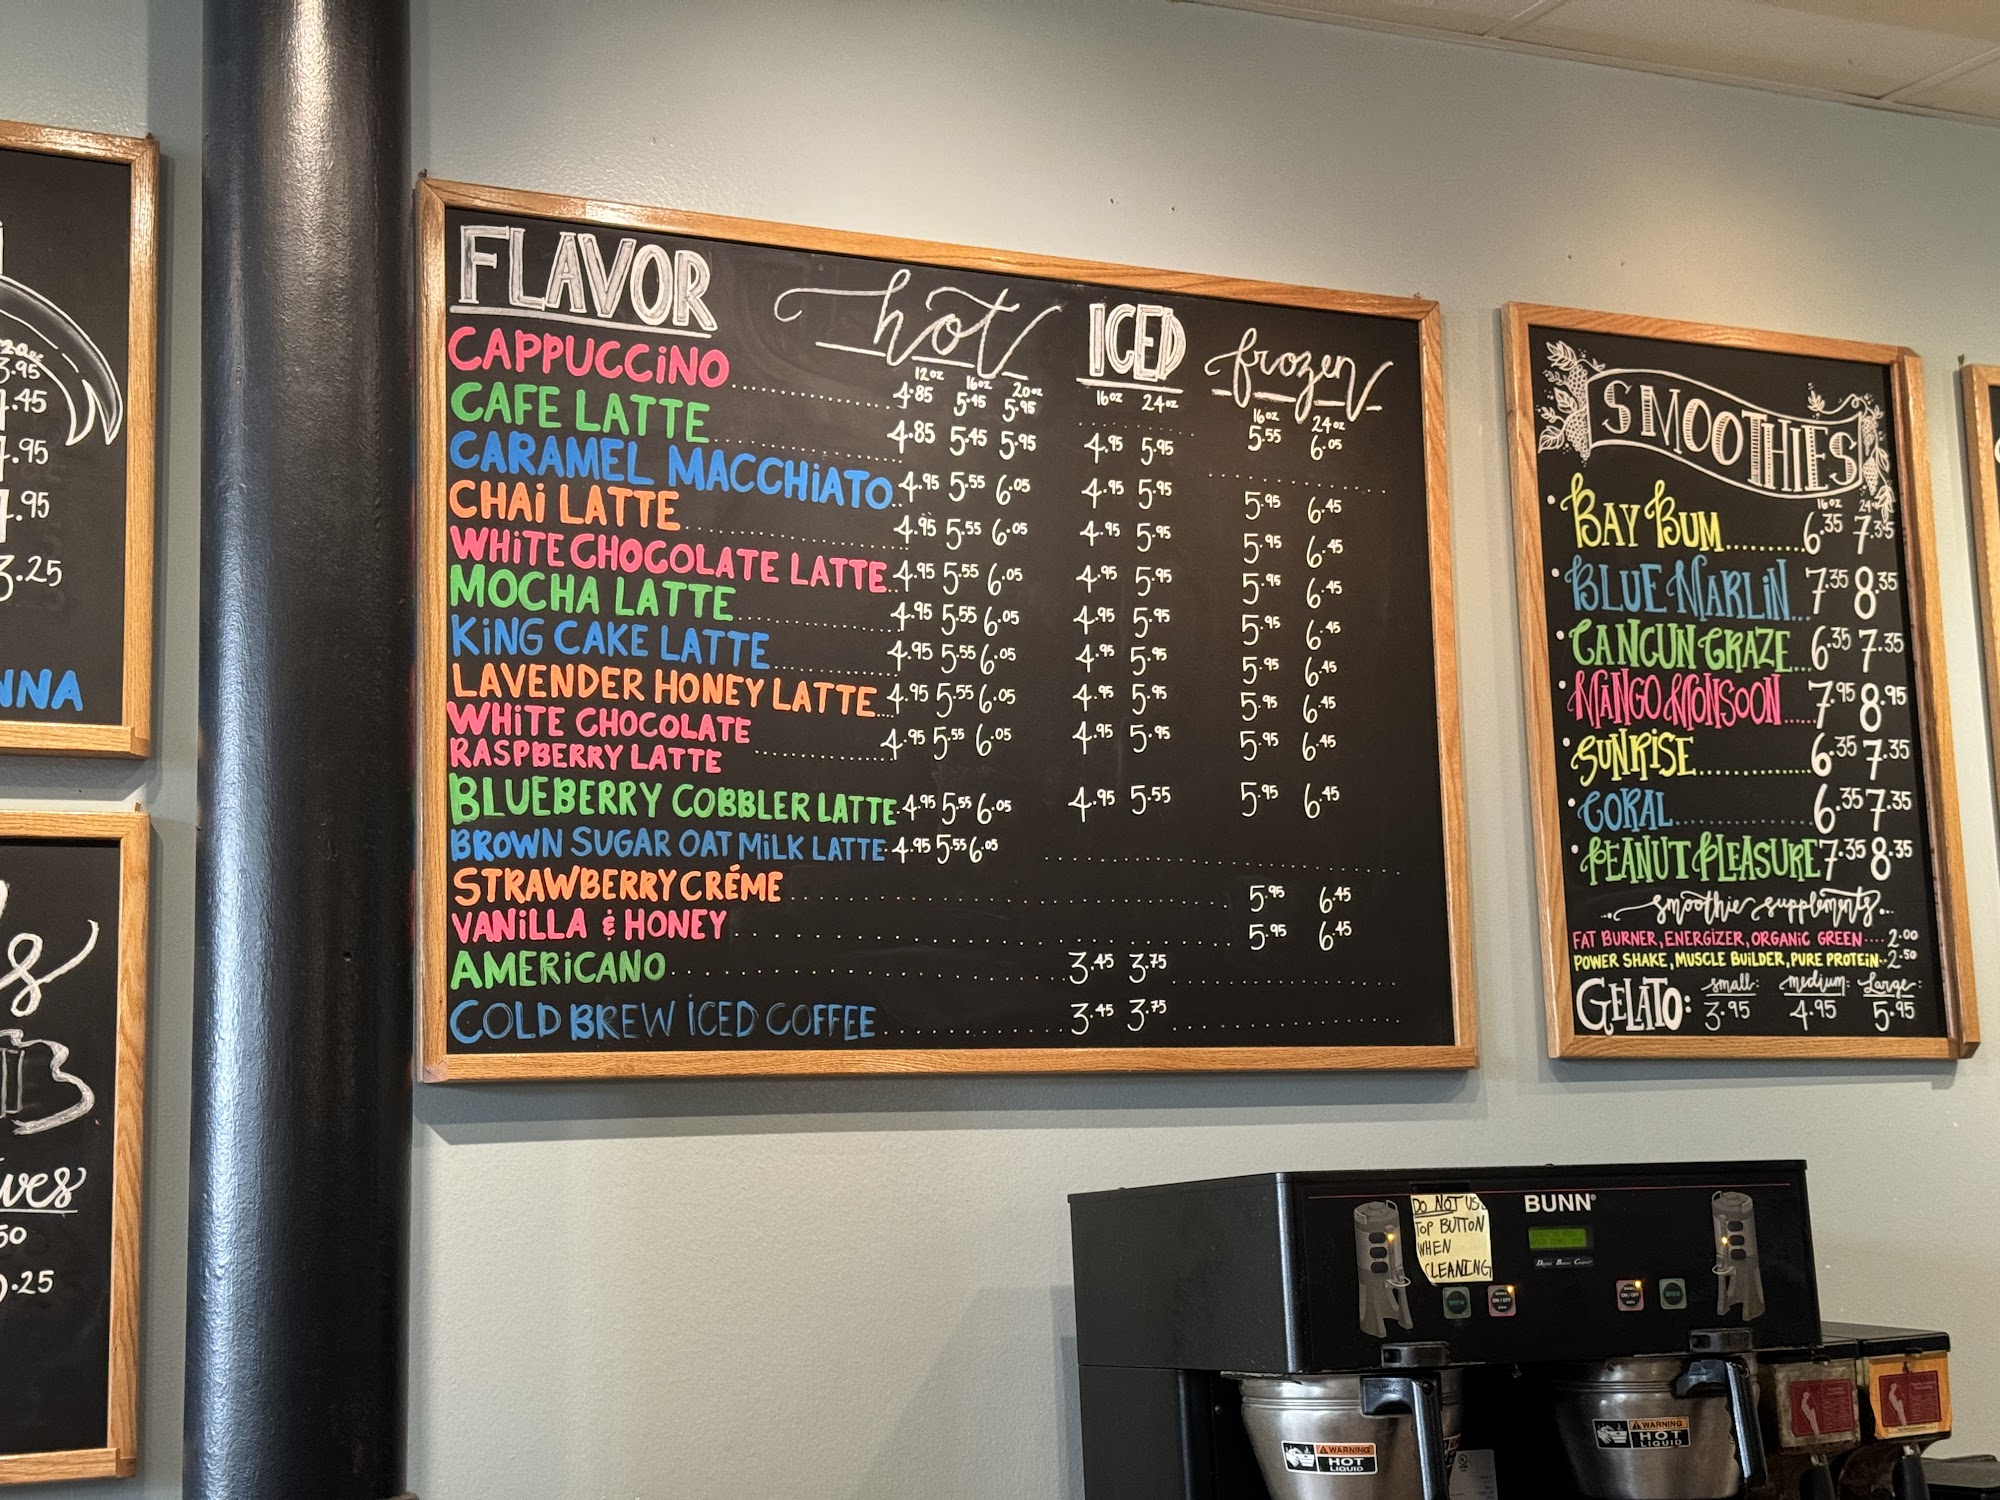 20oz
3.95
.45
.95
.95
3.25
FLAVOR hot ICED frozen
12oz 16oz 20oz 16oz 24oz 16oz 24oz
CAPPUCCINO 4.85 5.45 5.95 5.55 6.05
CAFE LATTE 4.85 5.45 5.95 4.95 5.95
CARAMEL MACCHIATO 4.95 5.55 6.05 4.95 5.95 5.95 6.45
CHAI LATTE 4.95 5.55 6.05 4.95 5.95 5.95 6.45
WHITE CHOCOLATE LATTE 4.95 5.55 6.05 4.95 5.95 5.95 6.45
MOCHA LATTE 4.95 5.55 6.05 4.95 5.95 5.95 6.45
KING CAKE LATTE 4.95 5.55 6.05 4.95 5.95 5.95 6.45
LAVENDER HONEY LATTE 4.95 5.55 6.05 4.95 5.95 5.95 6.45
WHITE CHOCOLATE
RASPBERRY LATTE 4.95 5.55 6.05 4.95 5.95 5.95 6.45
BLUEBERRY COBBLER LATTE 4.95 5.55 6.05 4.95 5.55 5.95 6.45
BROWN SUGAR OAT MILK LATTE 4.95 5.55 6.05
STRAWBERRY CRÉME 5.95 6.45
VANILLA & HONEY 5.95 6.45
AMERICANO 3.45 3.75
COLD BREW ICED COFFEE 3.45 3.75
SMOOTHIES
16oz
BAY BUM 6.35 7.35
BLUE MARLIN 7.35 8.35
CANCUN CRAZE 6.35 7.35
MANGO MONSOON 7.95 8.95
SUNRISE 6.35 7.35
CORAL 6.35 7.35
PEANUT PLEASURE 7.35 8.35
smoothie supplements
FAT BURNER, ENERGIZER, ORGANIC GREEN 2.00
POWER SHAKE, MUSCLE BUILDER, PURE PROTEIN 2.50
GELATO: small: medium: Large:
3.95 4.95 5.95
BUNN
DO NOT US
TOP BUTTON
WHEN
CLEANING
BREW
ON/OFF
ON/OFF
BREW
WARNING
HOT
LIQUID
WARNING
HOT
LIQUID